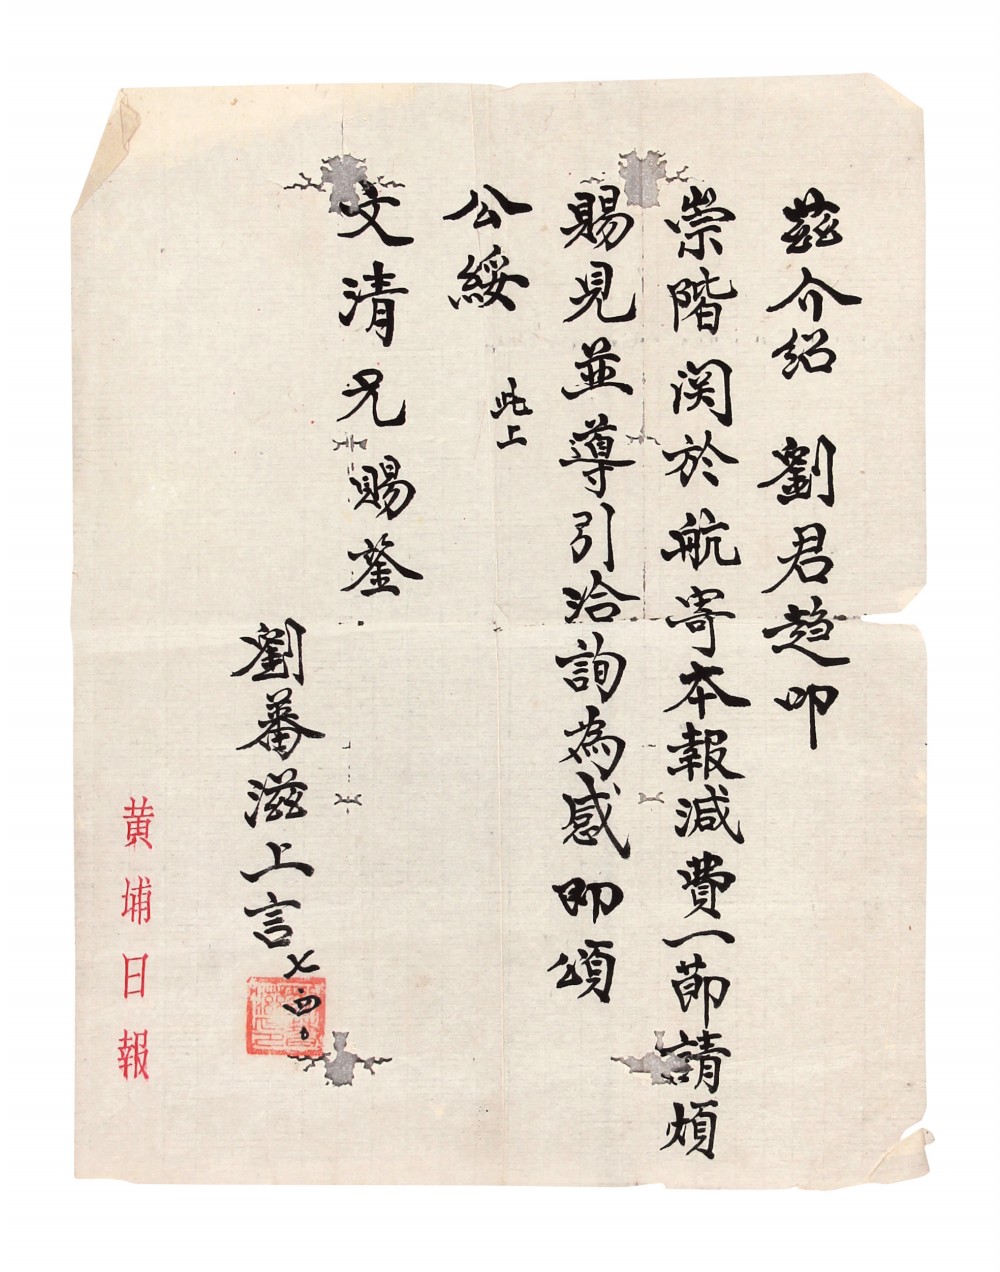 茲介紹 劉君趨叩
崇階関於航寄本報減費一節請煩
賜見並導引洽詢為感即頌
公綏
此上
文清兄賜鋻
劉蕃滋上言 七、四、
黃埔日報